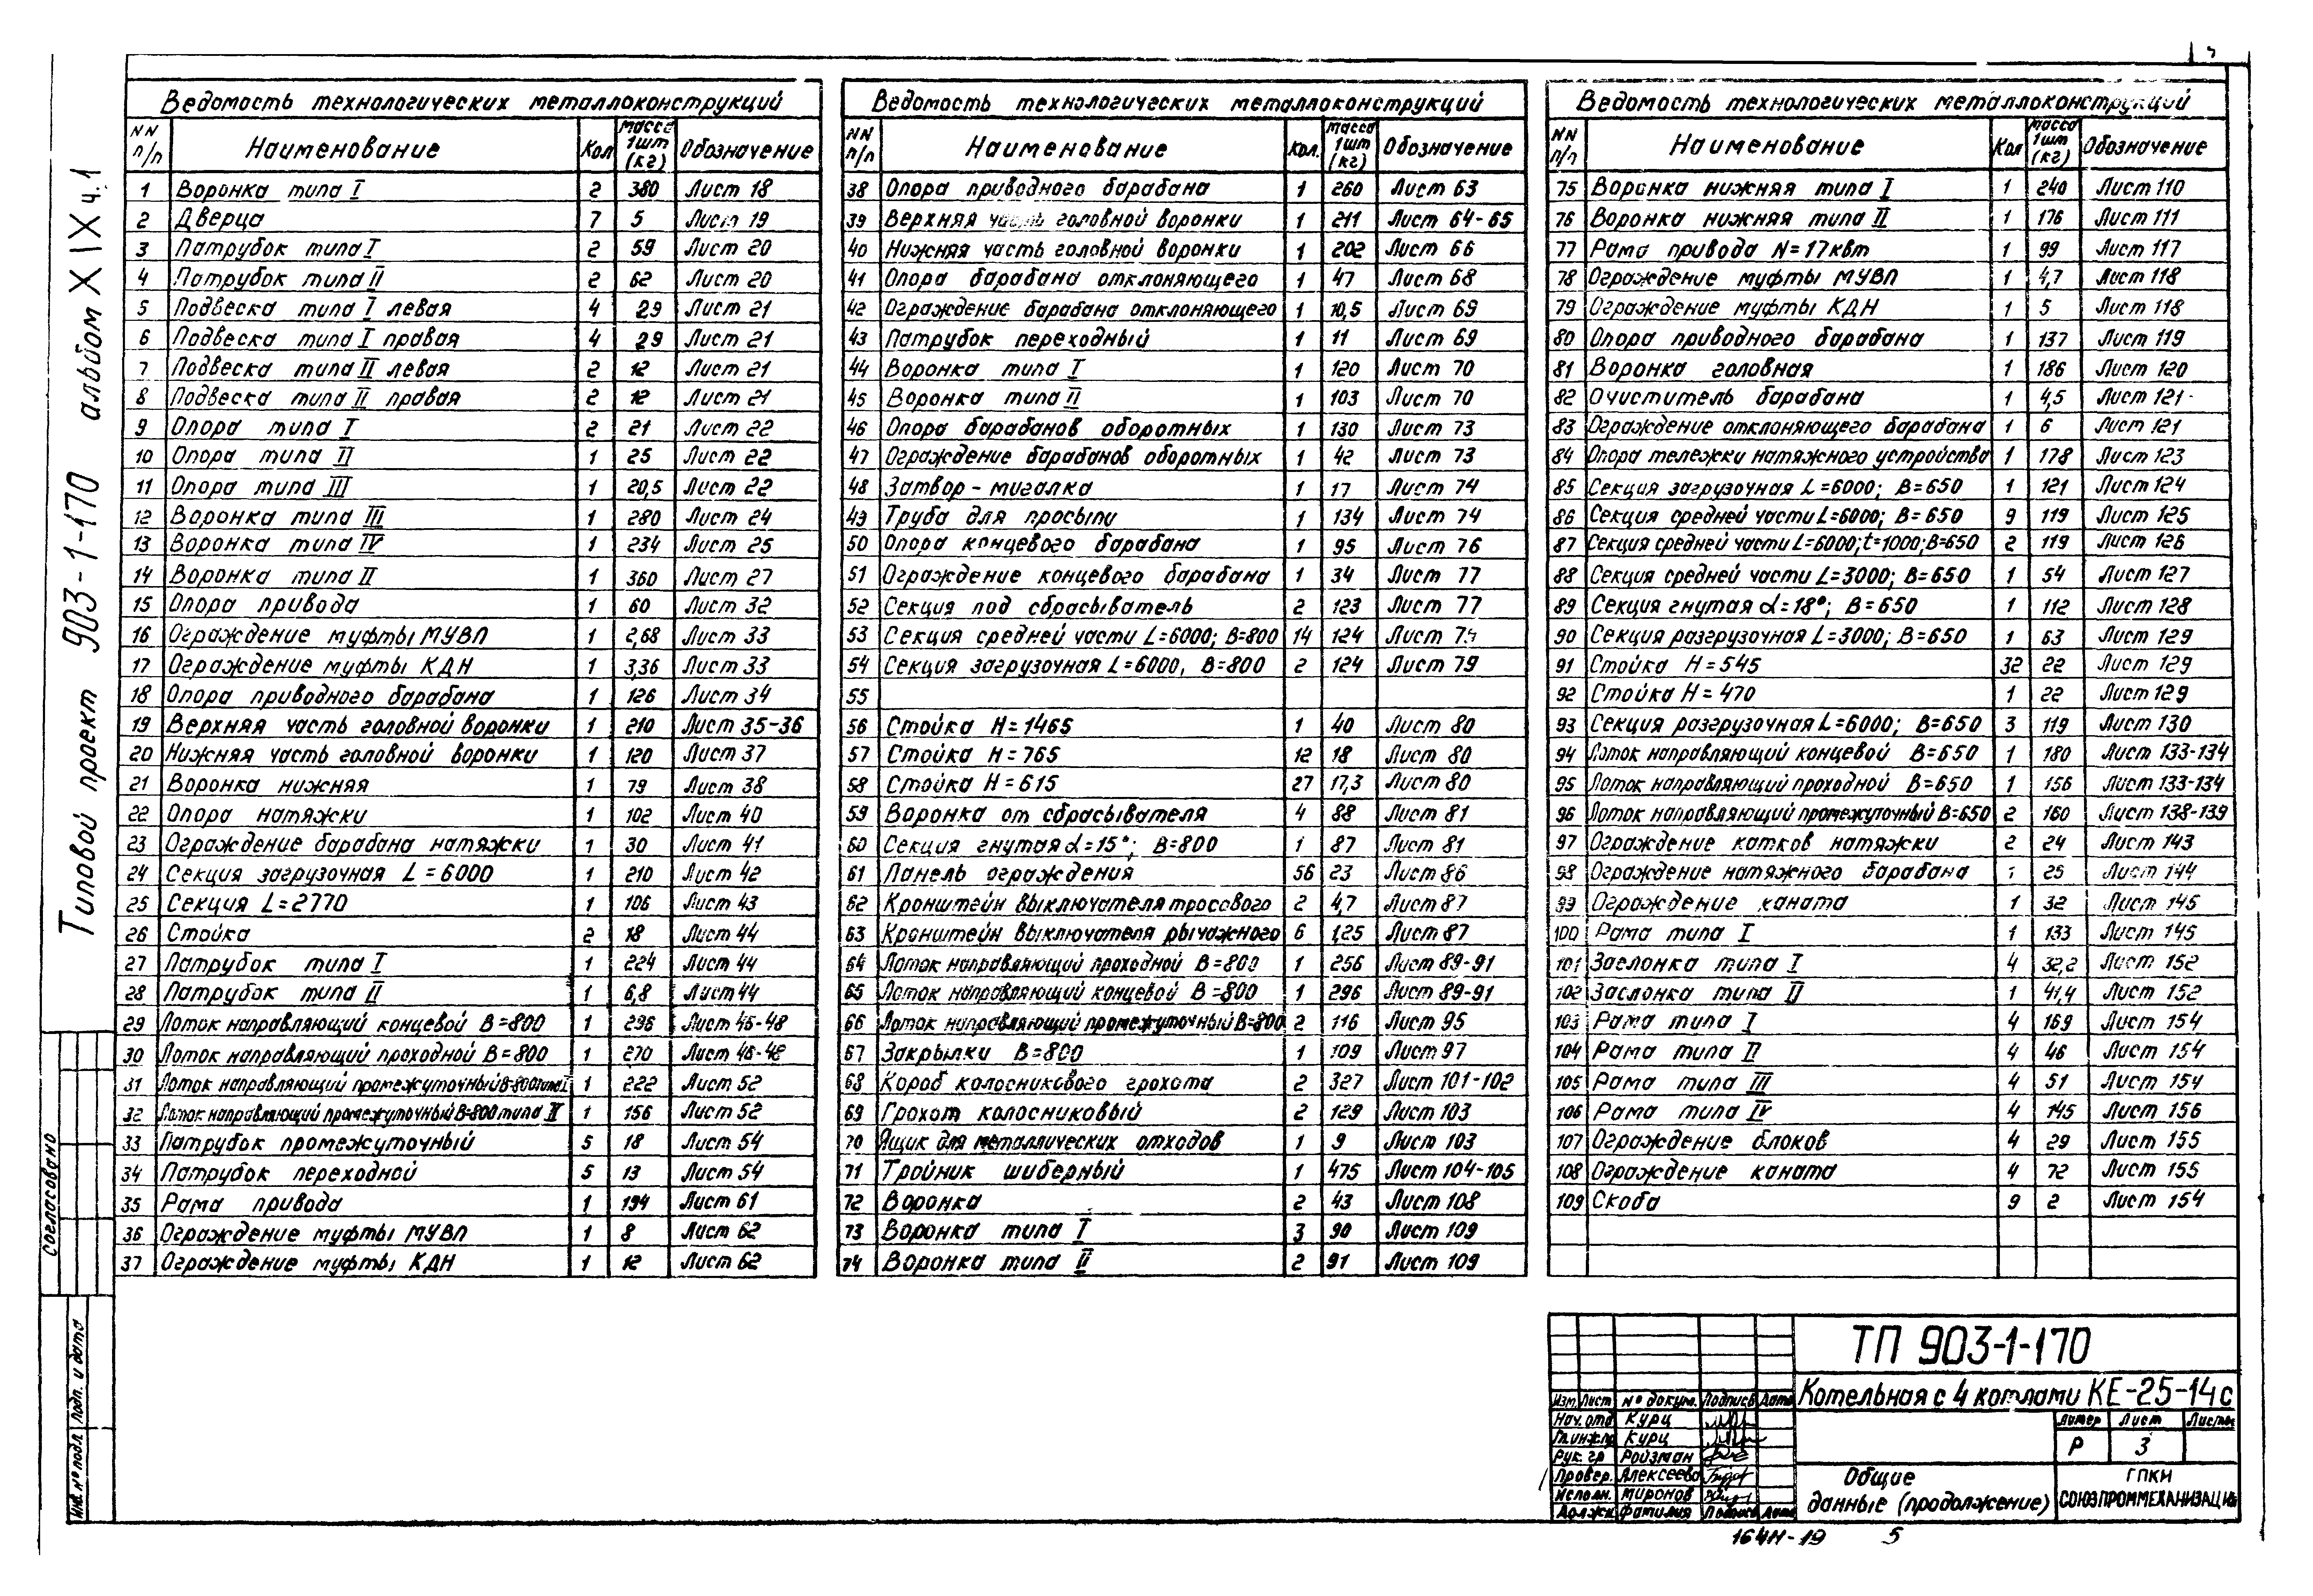 Типовой проект 903-1-170 альбом XIX ч.1
Ведомость технологических металлоконструкций
NN п/п Наименование Кол Масса 1шт (кг) Обозначение
1 Воронка типа I 2 380 Лист 18
2 Дверца 7 5 Лист 19
3 Патрубок типа I 2 59 Лист 20
4 Патрубок типа II 2 62 Лист 20
5 Подвеска типа I левая 4 29 Лист 21
6 Подвеска типа I правая 4 29 Лист 21
7 Подвеска типа II левая 2 12 Лист 21
8 Подвеска типа II правая 2 12 Лист 21
9 Опора типа I 2 21 Лист 22
10 Опора типа II 1 25 Лист 22
11 Опора типа III 1 20,5 Лист 22
12 Воронка типа III 1 280 Лист 24
13 Воронка типа IV 1 234 Лист 25
14 Воронка типа II 1 360 Лист 27
15 Опора привода 1 60 Лист 32
16 Ограждение муфты МУВП 1 2,68 Лист 33
17 Ограждение муфты КДН 1 3,36 Лист 33
18 Опора приводного барабана 1 126 Лист 34
19 Верхняя часть головной воронки 1 210 Лист 35-36
20 Нижняя часть головной воронки 1 120 Лист 37
21 Воронка нижняя 1 79 Лист 38
22 Опора натяжки 1 102 Лист 40
23 Ограждение барабана натяжки 1 30 Лист 41
24 Секция загрузочная L=6000 1 210 Лист 42
25 Секция L=2770 1 106 Лист 43
26 Стойка 2 18 Лист 44
27 Патрубок типа I 1 224 Лист 44
28 Патрубок типа II 1 6,8 Лист 44
29 Лоток направляющий концевой В=800 1 296 Лист 46-48
30 Лоток направляющий проходной В=800 1 270 Лист 46-48
31 Лоток направляющий промежуточный В-800 типа I 1 222 Лист 52
32 Лоток направляющий промежуточный В-800 типа II 1 156 Лист 52
33 Патрубок промежуточный 5 18 Лист 54
34 Патрубок переходной 5 13 Лист 54
35 Рама привода 1 194 Лист 61
36 Ограждение муфты МУВП 1 8 Лист 62
37 Ограждение муфты КДН 1 12 Лист 62
Ведомость технологических металлоконструкций
NN п/п Наименование Кол. Масса 1шт (кг) Обозначение
38 Опора приводного барабана 1 260 Лист 63
39 Верхняя часть головной воронки 1 211 Лист 64-65
40 Нижняя часть головной воронки 1 202 Лист 66
41 Опора барабана отклоняющего 1 47 Лист 68
42 Ограждение барабана отклоняющего 1 10,5 Лист 69
43 Патрубок переходный 1 11 Лист 69
44 Воронка типа I 1 120 Лист 70
45 Воронка типа II 1 103 Лист 70
46 Опора барабанов оборотных 1 130 Лист 73
47 Ограждение барабанов оборотных 1 42 Лист 73
48 Затвор-мигалка 1 17 Лист 74
49 Труба для просыпи 1 134 Лист 74
50 Опора концевого барабана 1 95 Лист 76
51 Ограждение концевого барабана 1 34 Лист 77
52 Секция под сбрасыватель 2 123 Лист 77
53 Секция средней части L=6000; В=800 14 124 Лист 79
54 Секция загрузочная L=6000, В=800 2 124 Лист 79
55
56 Стойка Н=1465 1 40 Лист 80
57 Стойка Н=765 12 18 Лист 80
58 Стойка Н=615 27 17,3 Лист 80
59 Воронка от сбрасывателя 4 88 Лист 81
60 Секция гнутая α=15°; В=800 1 87 Лист 81
61 Панель ограждения 56 23 Лист 86
62 Кронштейн выключателя тросового 2 4,7 Лист 87
63 Кронштейн выключателя рычажного 6 1,25 Лист 87
64 Лоток направляющий проходной В=800 1 256 Лист 89-91
65 Лоток направляющий концевой В=800 1 296 Лист 89-91
66 Лоток направляющий промежуточный В=800 2 116 Лист 95
67 Закрылки В=800 1 109 Лист 97
68 Короб колосникового грохота 2 327 Лист 101-102
69 Грохот колосниковый 2 129 Лист 103
70 Ящик для металлических отходов 1 9 Лист 103
71 Тройник шиберный 1 475 Лист 104-105
72 Воронка 2 43 Лист 108
73 Воронка типа I 3 90 Лист 109
74 Воронка типа II 2 91 Лист 109
Ведомость технологических металлоконструкций
NN п/п Наименование Кол Масса 1шт (кг) Обозначение
75 Воронка нижняя типа I 1 240 Лист 110
76 Воронка нижняя типа II 1 176 Лист 111
77 Рама привода N=17квт 1 99 Лист 117
78 Ограждение муфты МУВП 1 4,7 Лист 118
79 Ограждение муфты КДН 1 5 Лист 118
80 Опора приводного барабана 1 137 Лист 119
81 Воронка головная 1 186 Лист 120
82 Очиститель барабана 1 4,5 Лист 121
83 Ограждение отклоняющего барабана 1 6 Лист 121
84 Опора тележки натяжного устройства 1 178 Лист 123
85 Секция загрузочная L=6000; В=650 1 121 Лист 124
86 Секция средней части L=6000; В=650 9 119 Лист 125
87 Секция средней части L=6000; t=1000; В=650 2 119 Лист 126
88 Секция средней части L=3000; В=650 1 54 Лист 127
89 Секция гнутая α=18°; В=650 1 112 Лист 128
90 Секция разгрузочная L=3000; В=650 1 63 Лист 129
91 Стойка Н=545 32 22 Лист 129
92 Стойка Н=470 1 22 Лист 129
93 Секция разгрузочная L=6000; В=650 3 119 Лист 130
94 Лоток направляющий концевой В=650 1 180 Лист 133-134
95 Лоток направляющий проходной В=650 1 156 Лист 133-134
96 Лоток направляющий промежуточный В=650 2 160 Лист 138-139
97 Ограждение катков натяжки 2 24 Лист 143
98 Ограждение натяжного барабана 25 Лист 144
99 Ограждение каната 1 32 Лист 145
100 Рама типа I 1 133 Лист 145
101 Заслонка типа I 4 32,2 Лист 152
102 Заслонка типа II 1 41,4 Лист 152
103 Рама типа I 4 169 Лист 154
104 Рама типа II 4 46 Лист 154
105 Рама типа III 4 51 Лист 154
106 Рама типа IV 4 145 Лист 156
107 Ограждение блоков 4 29 Лист 155
108 Ограждение каната 4 72 Лист 155
109 Скоба 9 2 Лист 154
Согласовано
Инв. № подл. Подп. и дата
ТП 903-1-170
Котельная с 4 котлами КЕ-25-14с
Изм. Лист № докум. Подпись Дата
Нач. отд Курц
Гл.инж.пр Курц
Рук. гр Ройзман
Провер. Алексеева
Исполн. Миронов
Должн. Фамилия Подпись Дата
Литер Лист Листы
Р 3
Общие данные (продолжение)
ГПКИ
СОЮЗПРОММЕХАНИЗАЦИЯ
5